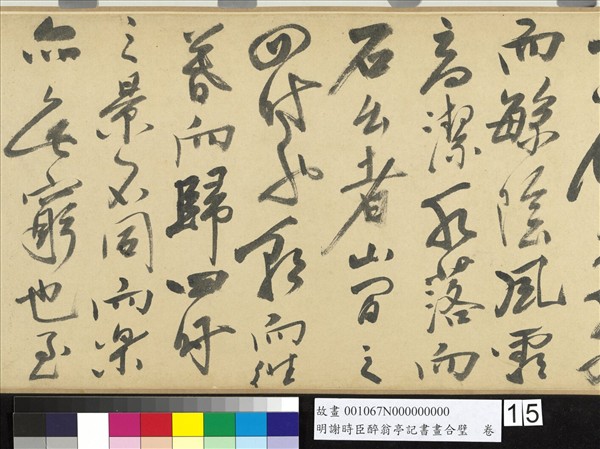 而繁陰風霜
高潔水落而
石出者山間之
四時也朝而往
暮而歸四時
之景不同而樂
亦無窮也至
故畫 001067N000000000
明謝時臣醉翁亭記書畫合璧 卷
15